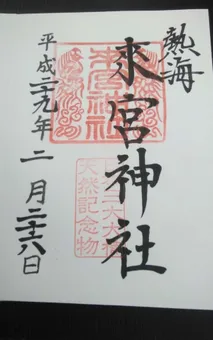 熱海
來宮神社
平成二十九年二月二十八日
來宮神社
天然記念物